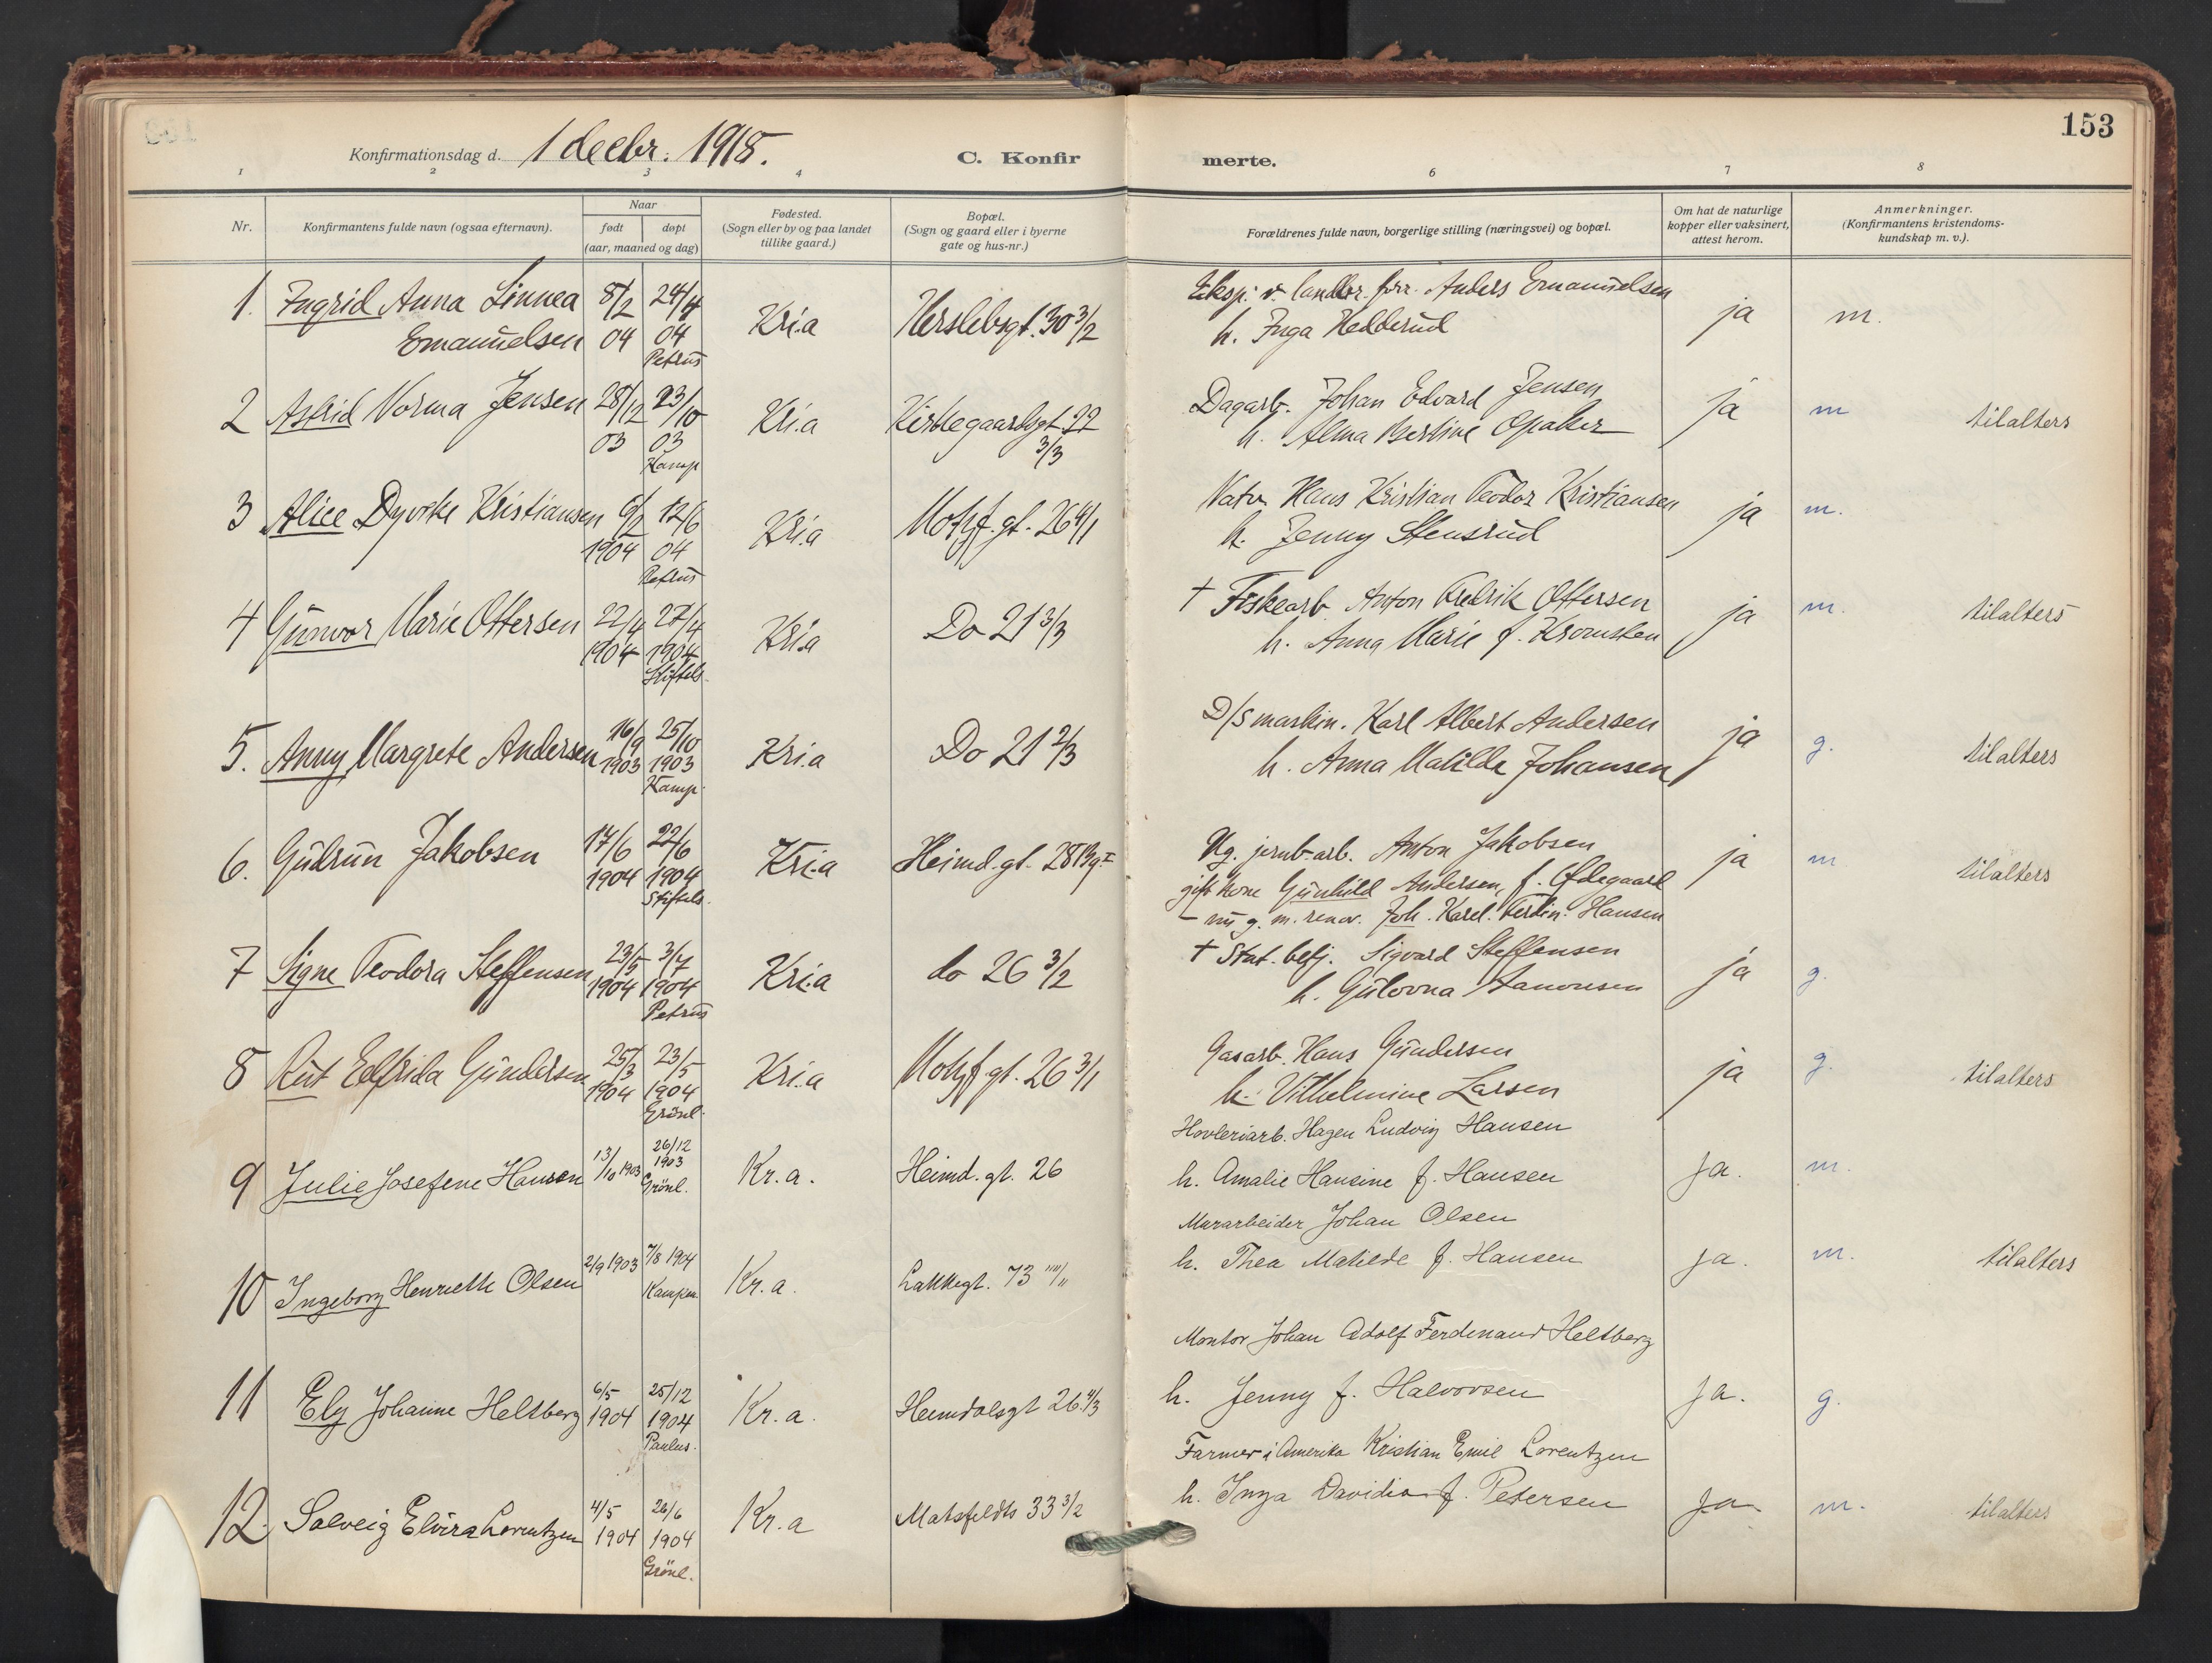 153
Konfirmationsdag d. 1 decbr. 1918.
C. Konfirmerte.
1 2 3 4 6 7 8
Nr.
Konfirmantens fulde navn (ogsaa efternavn).
Naar
født
døpt
(aar, maaned og dag)
Fødested.
(Sogn eller by og paa landet
tillike gaard.)
Bopæl.
(Sogn og gaard eller i byerne
gate og hus-nr.)
Forældrenes fulde navn, borgerlige stilling (næringsvei) og bopæl.
Om hat de naturlige
kopper eller vaksinert,
attest herom.
Anmerkninger.
(Konfirmantens kristendoms-
kundskap m. v.).
1. Ingrid Anna Linnea
Emanuelsen
8/2
04
24/4
04
Petrus
Kri.a
Herslebsgt. 30 3/2
Anders Emanuelsen
h. Inga Hedderud
ja
m.
2 Astrid Norma Jensen
28/12
03
23/10
03
Kamp
Kri.a
Kirkegaardsgt 22
3/3
Dagarb. Johan Edvard Jensen
h. Alma Bertine Opaker
ja
m
til alters
3 Alice Dyveke Kristiansen
6/2
1904
12/6
04
Petrus
Kri.a
Motzf. gt. 26 4/1
Natv. Hans Kristian Teodor Kristiansen
h. Jenny Stensrud
ja
m.
4 Gunvor Marie Ottersen
22/4
1904
27/4
1904
Stiftels.
Kri.a
Do 21 3/3
† Fiskearb. Anton Fredrik Ottersen
h. Anna Marie f. Kromsten
ja
m.
til alters
5. Anny Margrete Andersen
16/9
1903
25/10
1903
Kamp.
Kri.a
Do 21 2/3
D/S maskin. Karl Albert Andersen
h. Anna Matilde Johansen
ja
g.
til alters
6. Gudrun Jakobsen
17/6
1904
22/6
1904
Stiftels.
Kri.a
Heimd. gt. 28 Bg. I
Ug. jernb.arb. Anton Jakobsen
gift kone Gunhild Andersen, f. Ødegaard
– nu g. m. renov. Joh. Karel. Ferdin. Hansen
ja
m
til alters
7 Signe Teodora Steffensen
23/5
1904
3/7
1904
Petrus
Kri.a
do 26 3/2
† Stat. betj. Sigvard Steffensen
h. Gulovna
ja
g.
8 Rut Elfrida Gundersen
25/3
1904
23/5
1904
Grönl.
Kri.a
Motzf. gt. 26 3/1
Gasarb. Hans Gundersen
h. Vilhelmine Larsen
ja
g.
til alters
9 Julie Josefene Hansen
13/10 1903
26/12
1903
Grönl.
Kr. a.
Heimd. gt. 26
Høvleriarb. Hagen Ludvig Hansen
h. Amalie Hansine f. Hansen
Ja.
m.
10 Ingeborg Henriette Olsen
2/9 1903
7/8 1904
Kampen
Kr. a.
Lakkegt. 73
Murarbeider Johan Olsen
h. Thea Matilde f. Hansen
ja.
m.
til alters
11 Ely Johanne Heltberg
6/5
1904
25/12
1904
Paulus.
Kr. a.
Heimdalsgt 26. 4/3
Montør Johan Adolf Ferdenand Heltberg
h. Jenny f. Halvorsen
Ja.
g.
12. Solveig Elvira Lorentzen
4/5
1904
26/6
1904
Grönl.
Kr. a
Motsfeldts 33 3/2
Farmer i Amerika Kristian Emil Lorentzen
h. Inga Davidia f. Petersen
Ja
m.
til alters